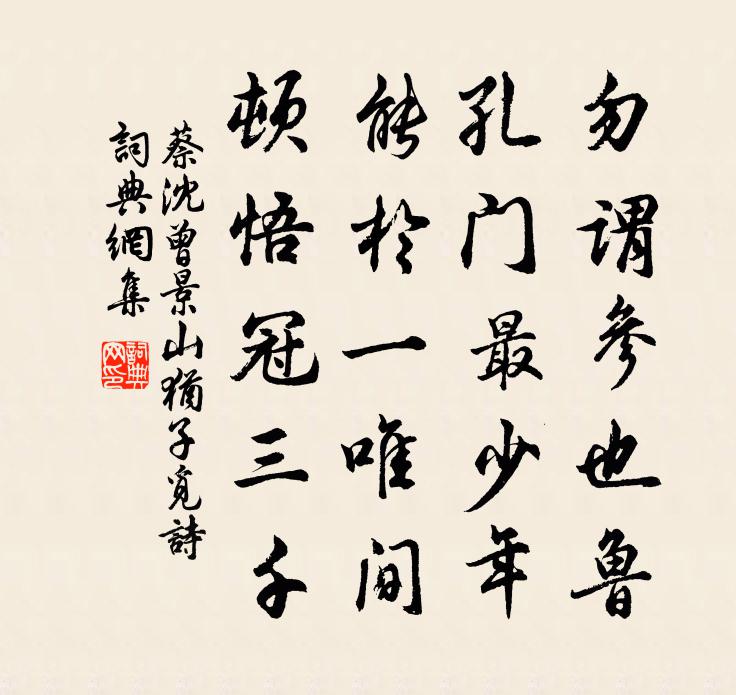 勿謂參也魯
孔门最少年
能於一唯间
頓悟冠三千
蔡沈曾景山猶子覓詩
詞典網集
詞典網印